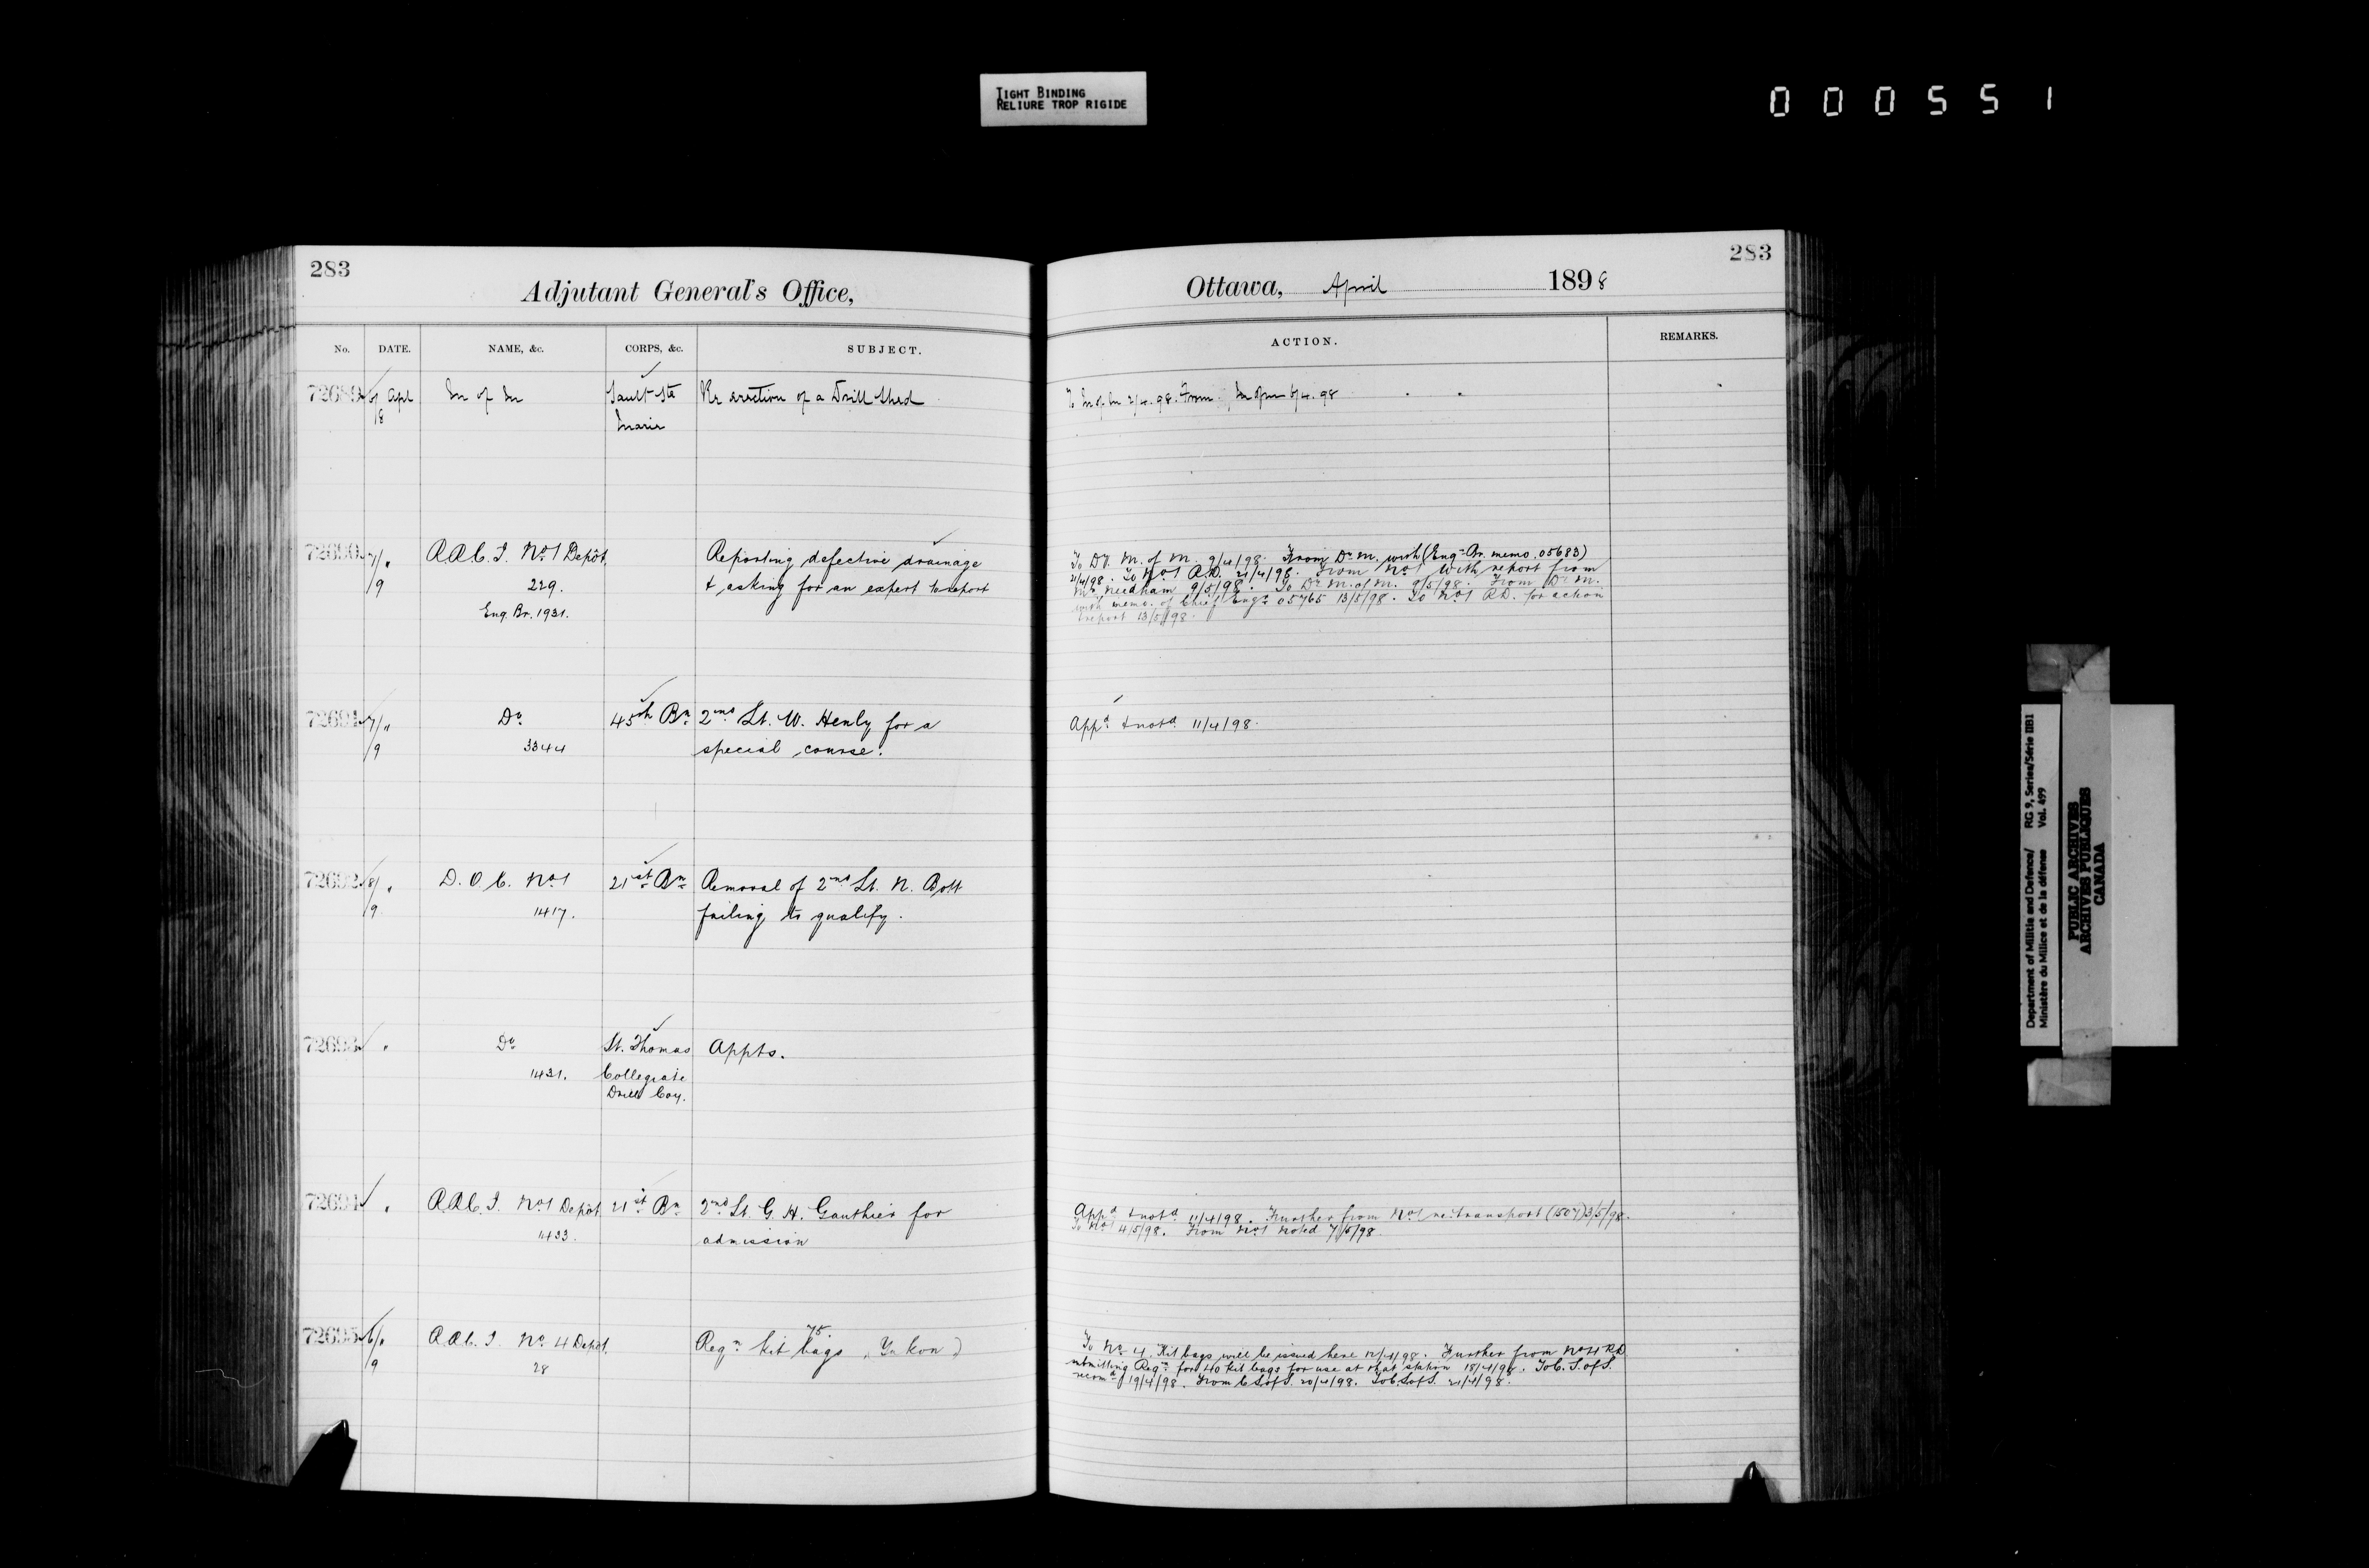 TIGHT BINDING
RELIURE TROP RIGIDE
000551
283
Adjutant General's Office,
No. DATE. NAME, &c. CORPS, &c. SUBJECT.
72689 6/8 Apl M of M Sault Ste Re erection of a Drill Shed
Marie
72690 7/9 " R.R.C.I. No 1 Depôt, Reporting defective drainage
229. & asking for an expert to report
Eng. Br. 1931.
72691 7/9 " Do 45th Bn 2nd Lt. W. Henly for a
3344 special course.
72692 8/9 " D.O.C. No 1 21st Bn Removal of 2nd Lt. N. Bott
1417. failing to qualify.
72693 " Do St. Thomas Appts.
1431. Collegiate
Drill Coy.
72694 " R.R.C.I. No 1 Depôt 21st Bn 2nd Lt. G. H. Gauthier for
1433. admission
72695 6/9 " R.R.C.I. No 4 Depôt. Reqn 75. kit bags (Yukon)
28
283
Ottawa, April 1898
ACTION. REMARKS.
To M of M 2/4.98. From M of M 6/4.98
To Dy. M. of M. 9/4/98. From D. M. with (Engr Br. memo. 05683)
21/4/98. To No 1 R.D. 21/4/98. From No 1 with report from
Mr. Needham 9/5/98. To D. M. of M. 9/5/98. From D. M.
with memo. of Chief Engr 05765 13/5/98. To No 1 R.D. for action
& report 13/5/98.
Appd & notd 11/4/98.
Appd & notd 11/4/98. Further from No 1 re: transport (1507) 3/5/98.
To No 1 4/5/98. From No 1 noted 7/5/98
To No 4. Kit bags will be issued here 12/4/98. Further from No 4 R.D
submitting Reqn for 40 kit bags for use at that station 18/4/98. To C.S. of S.
recomd 19/4/98. From C.S. of S. 20/4/98. To C.S. of S. 21/4/98.
Department of Militia and Defence/ RG 9, Series/Série IIB1
Ministère du Milice et de la défense Vol. 499
PUBLIC ARCHIVES
ARCHIVES PUBLIQUES
CANADA